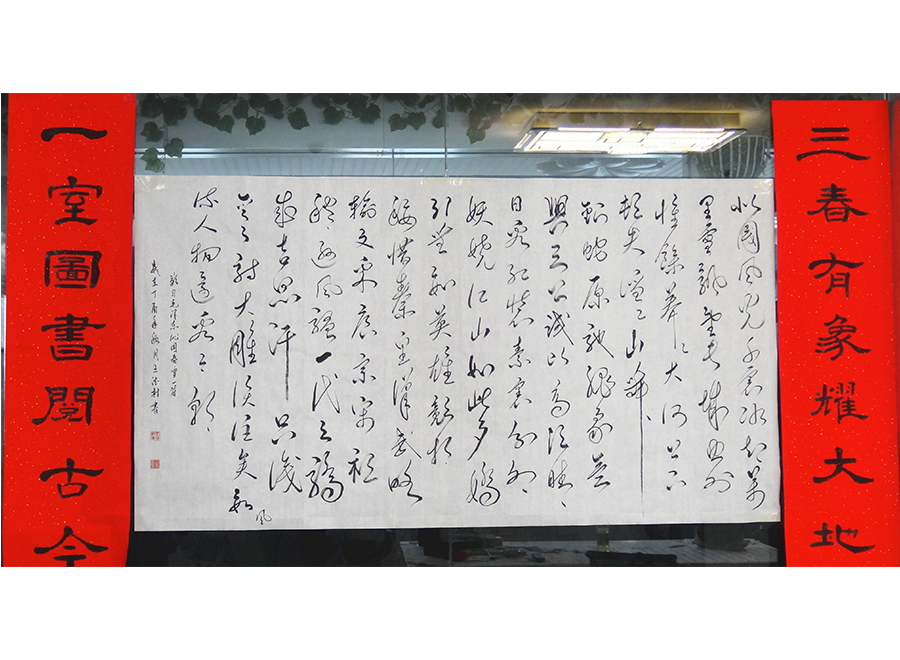 三春有象耀大地
北國風光千裏冰封萬
里雪飄望長城內外
惟餘莽莽大河上下
頓失滔滔山舞
銀蛇原馳蠟象欲
與天公試比高須晴
日看紅裝素裹分外
妖嬈江山如此多嬌
引無數英雄競折
腰惜秦皇漢武略
輸文采唐宗宋祖
稍遜風騷一代天驕
成吉思汗只識
彎弓射大雕俱往矣數風
流人物還看今朝
毛澤東沁園春雪一首
歲在丁酉年秋月王書
一室圖書閱古今